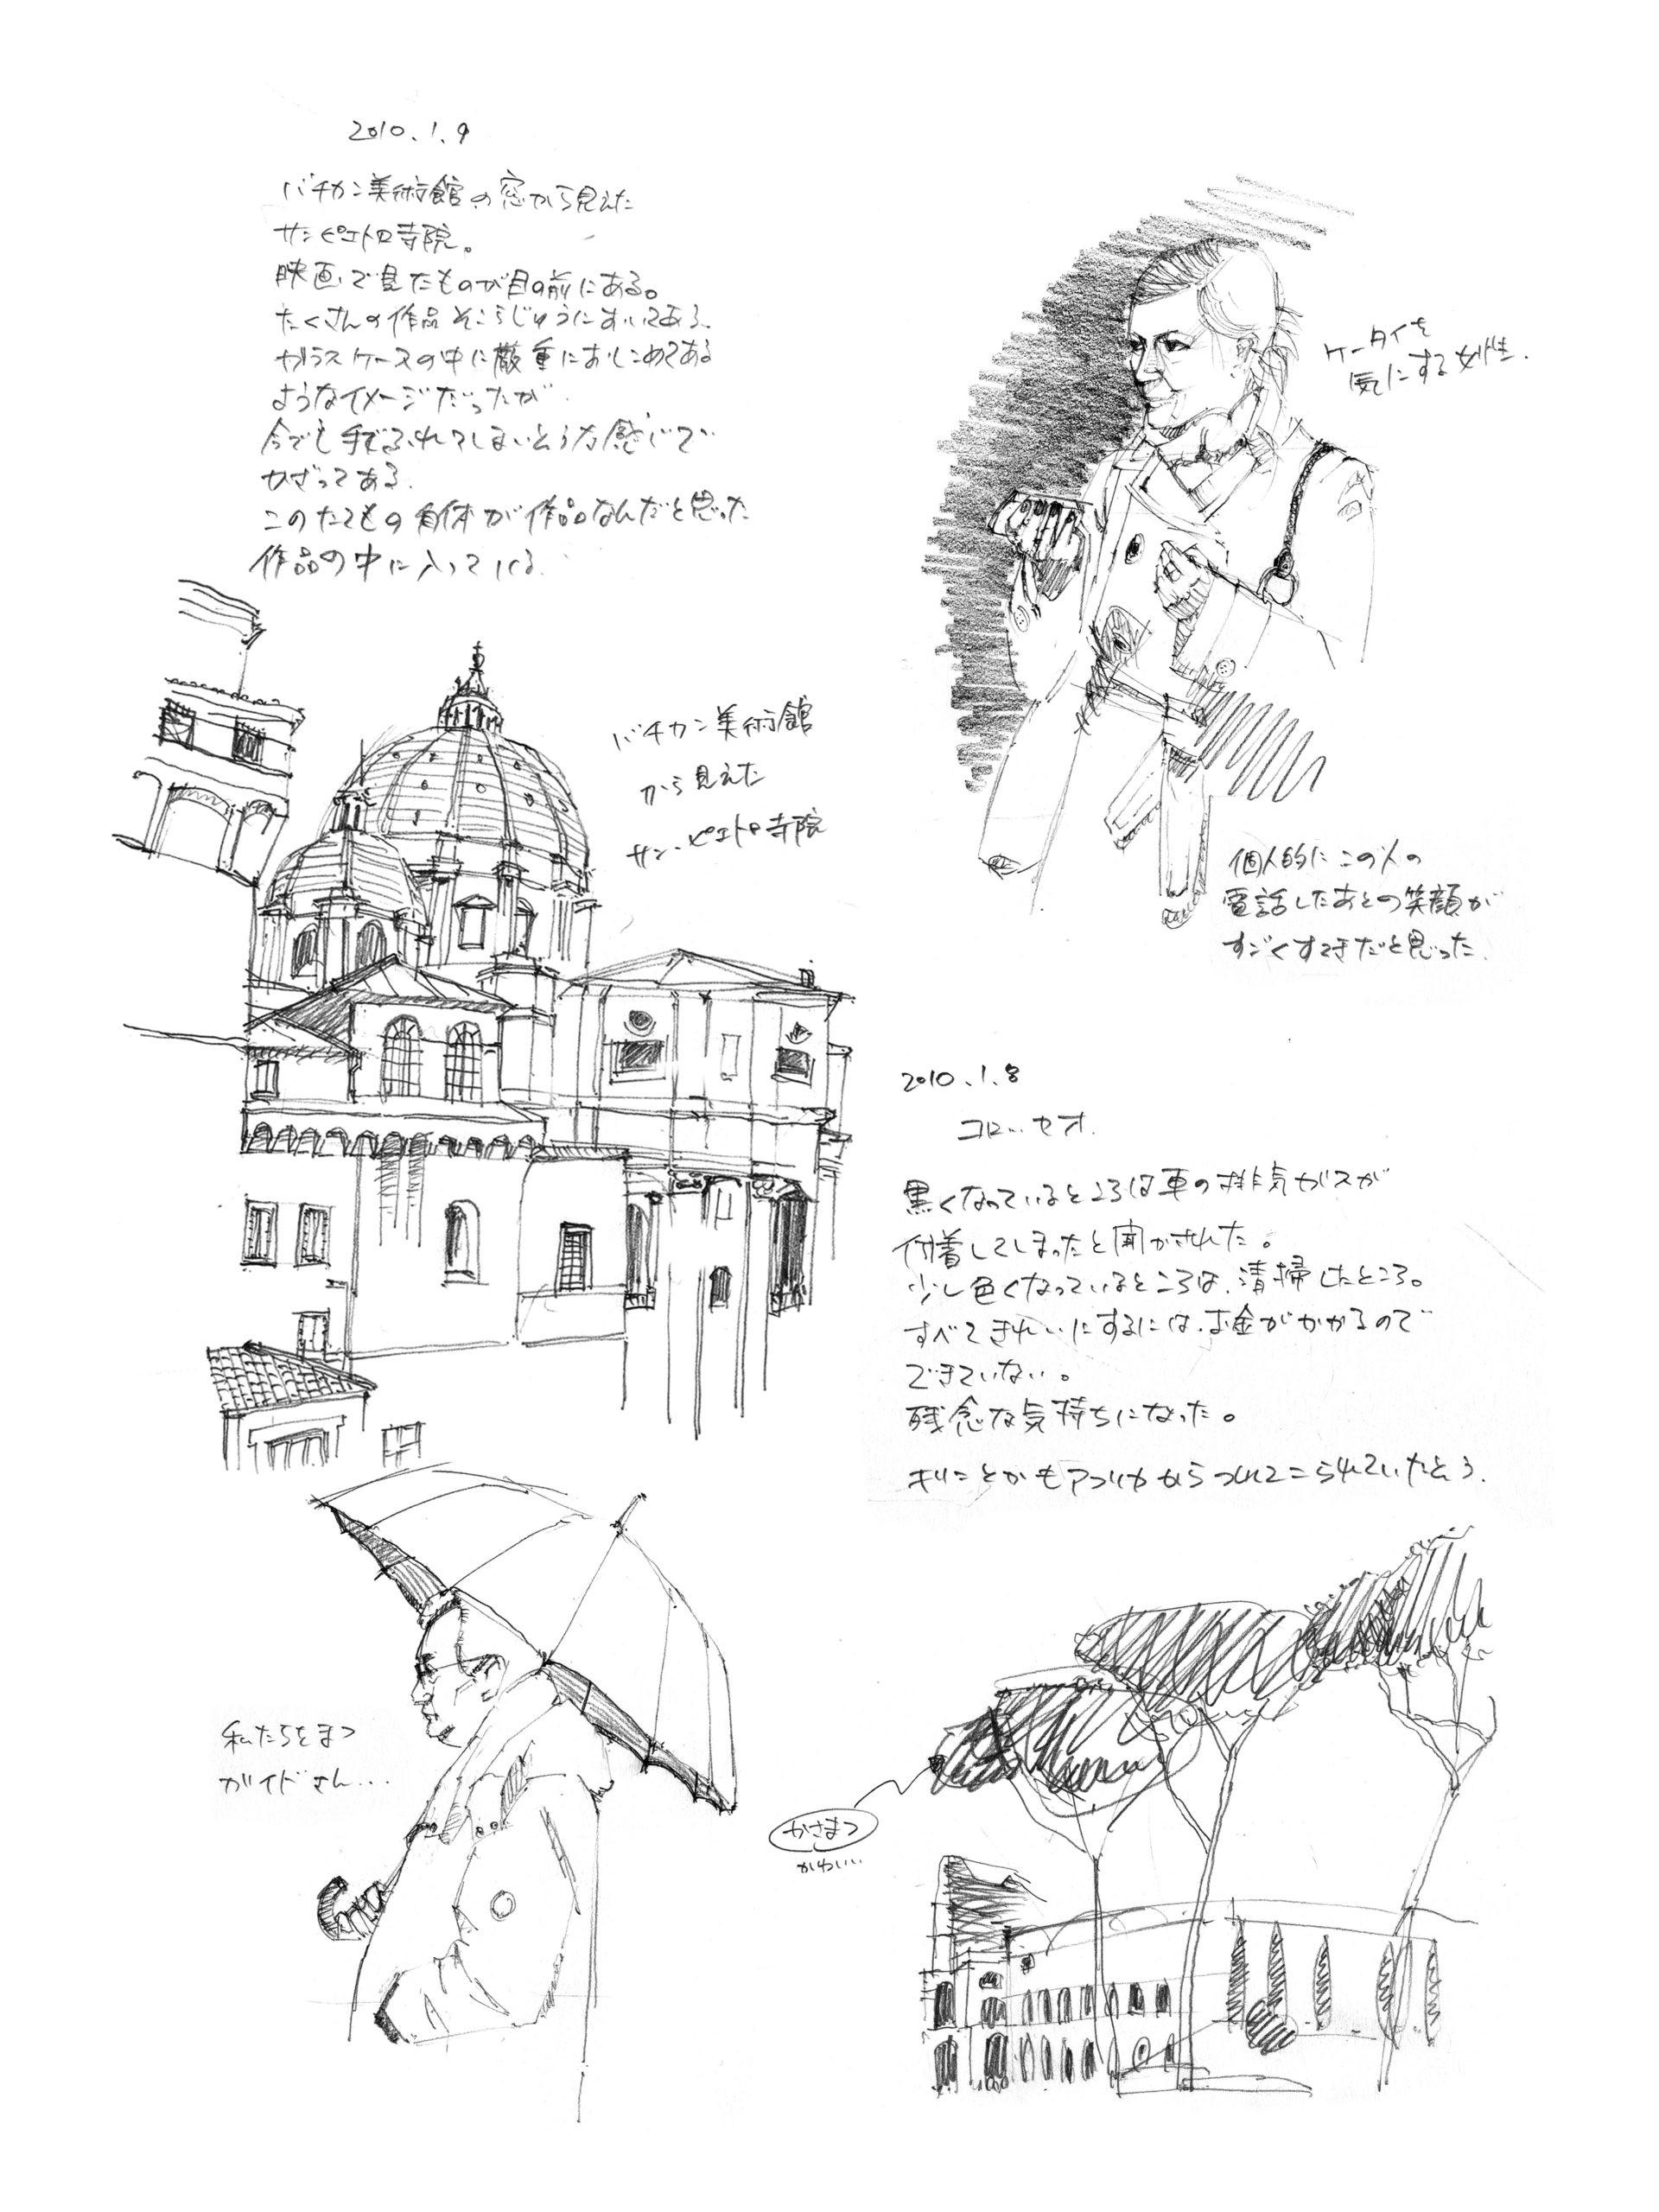 2010.1.9
バチカン美術館の窓から見えた
サンピエトロ寺院。
映画で見たものが目の前にある。
たくさんの作品そこらじゅうにおいてある。
ガラスケースの中に厳重におしこめてある
ようなイメージだったが
今でも手でふれてしまいそうな感じで
かざってある。
このたてもの自体が作品なんだと思った
作品の中に入っている。
バチカン美術館
から見えた
サン・ピエトロ寺院
ケータイを
気にする女性.
個人的にこの人の
電話したあとの笑顔が
すごくすてきだと思った.
2010.1.8
コロッセオ.
黒くなっているところは車の排気ガスが
付着してしまったと聞かされた。
少し色くなっているところは、清掃したところ。
すべてきれいにするには、お金がかかるので
できていない。
残念な気持ちになった。
キリンとかもアフリカからつれてこられていたそう.
私たちをまつ
ガイドさん...
かさまつ
かわいい